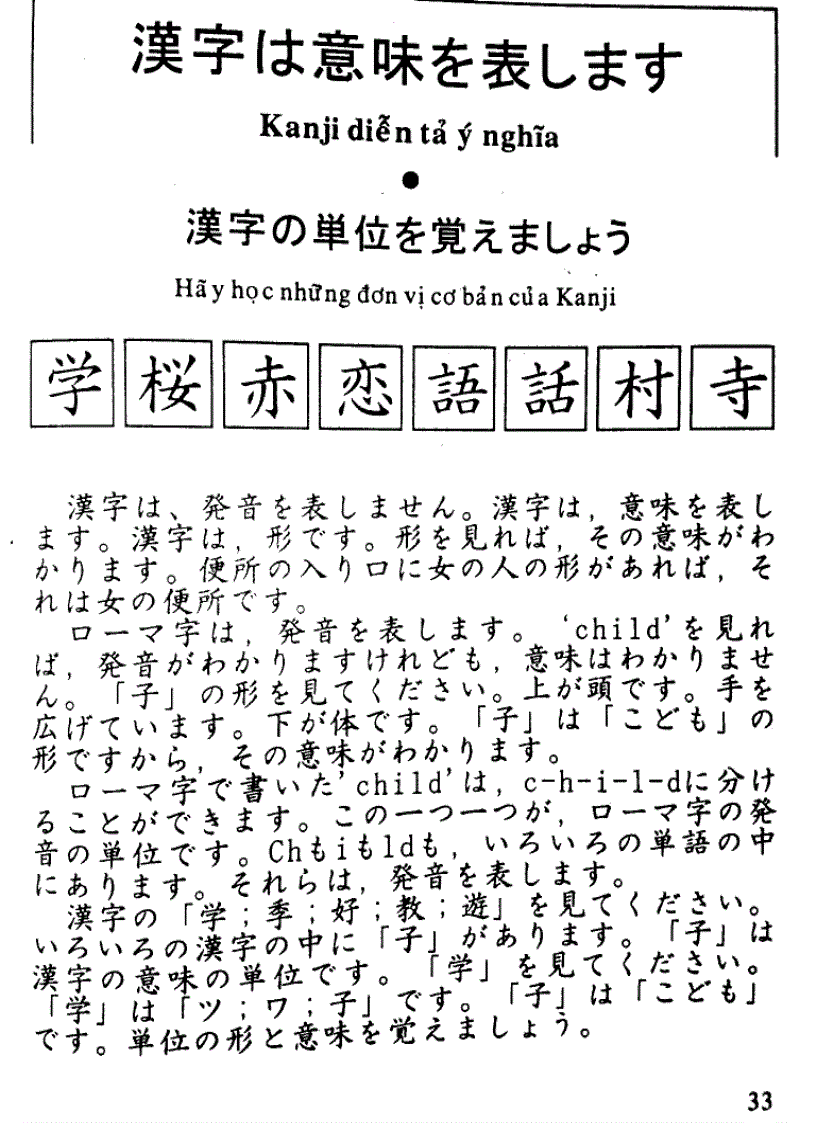 漢字は意味を表します
Kanji diễn tả ý nghĩa
漢字の単位を覚えましょう
Hãy học những đơn vị cơ bản của Kanji
学 桜 赤 恋 語 話 村 寺
漢字は、発音を表しません。漢字は, 意味を表し
ます。漢字は, 形です。形を見れば, その意味がわ
かります。便所の入り口に女の人の形があれば, そ
れは女の便所です。
ローマ字は, 発音を表します。 'child'を見れ
ば, 発音がわかりますけれども, 意味はわかりませ
ん。「子」の形を見てください。上が頭です。手を
広げています。下が体です。「子」は「こども」の
形ですから, その意味がわかります。
ローマ字で書いた'child'は, c-h-i-l-dに分け
ることができます。この一つ一つが, ローマ字の発
音の単位です。Chもiもldも, いろいろの単語の中
にあります。それらは, 発音を表します。
漢字の「学;季;好;教;遊」を見てください。
いろいろの漢字の中に「子」があります。「子」は
漢字の意味の単位です。「学」を見てください。
「学」は「ツ;ワ;子」です。「子」は「こども」
です。単位の形と意味を覚えましょう。
33